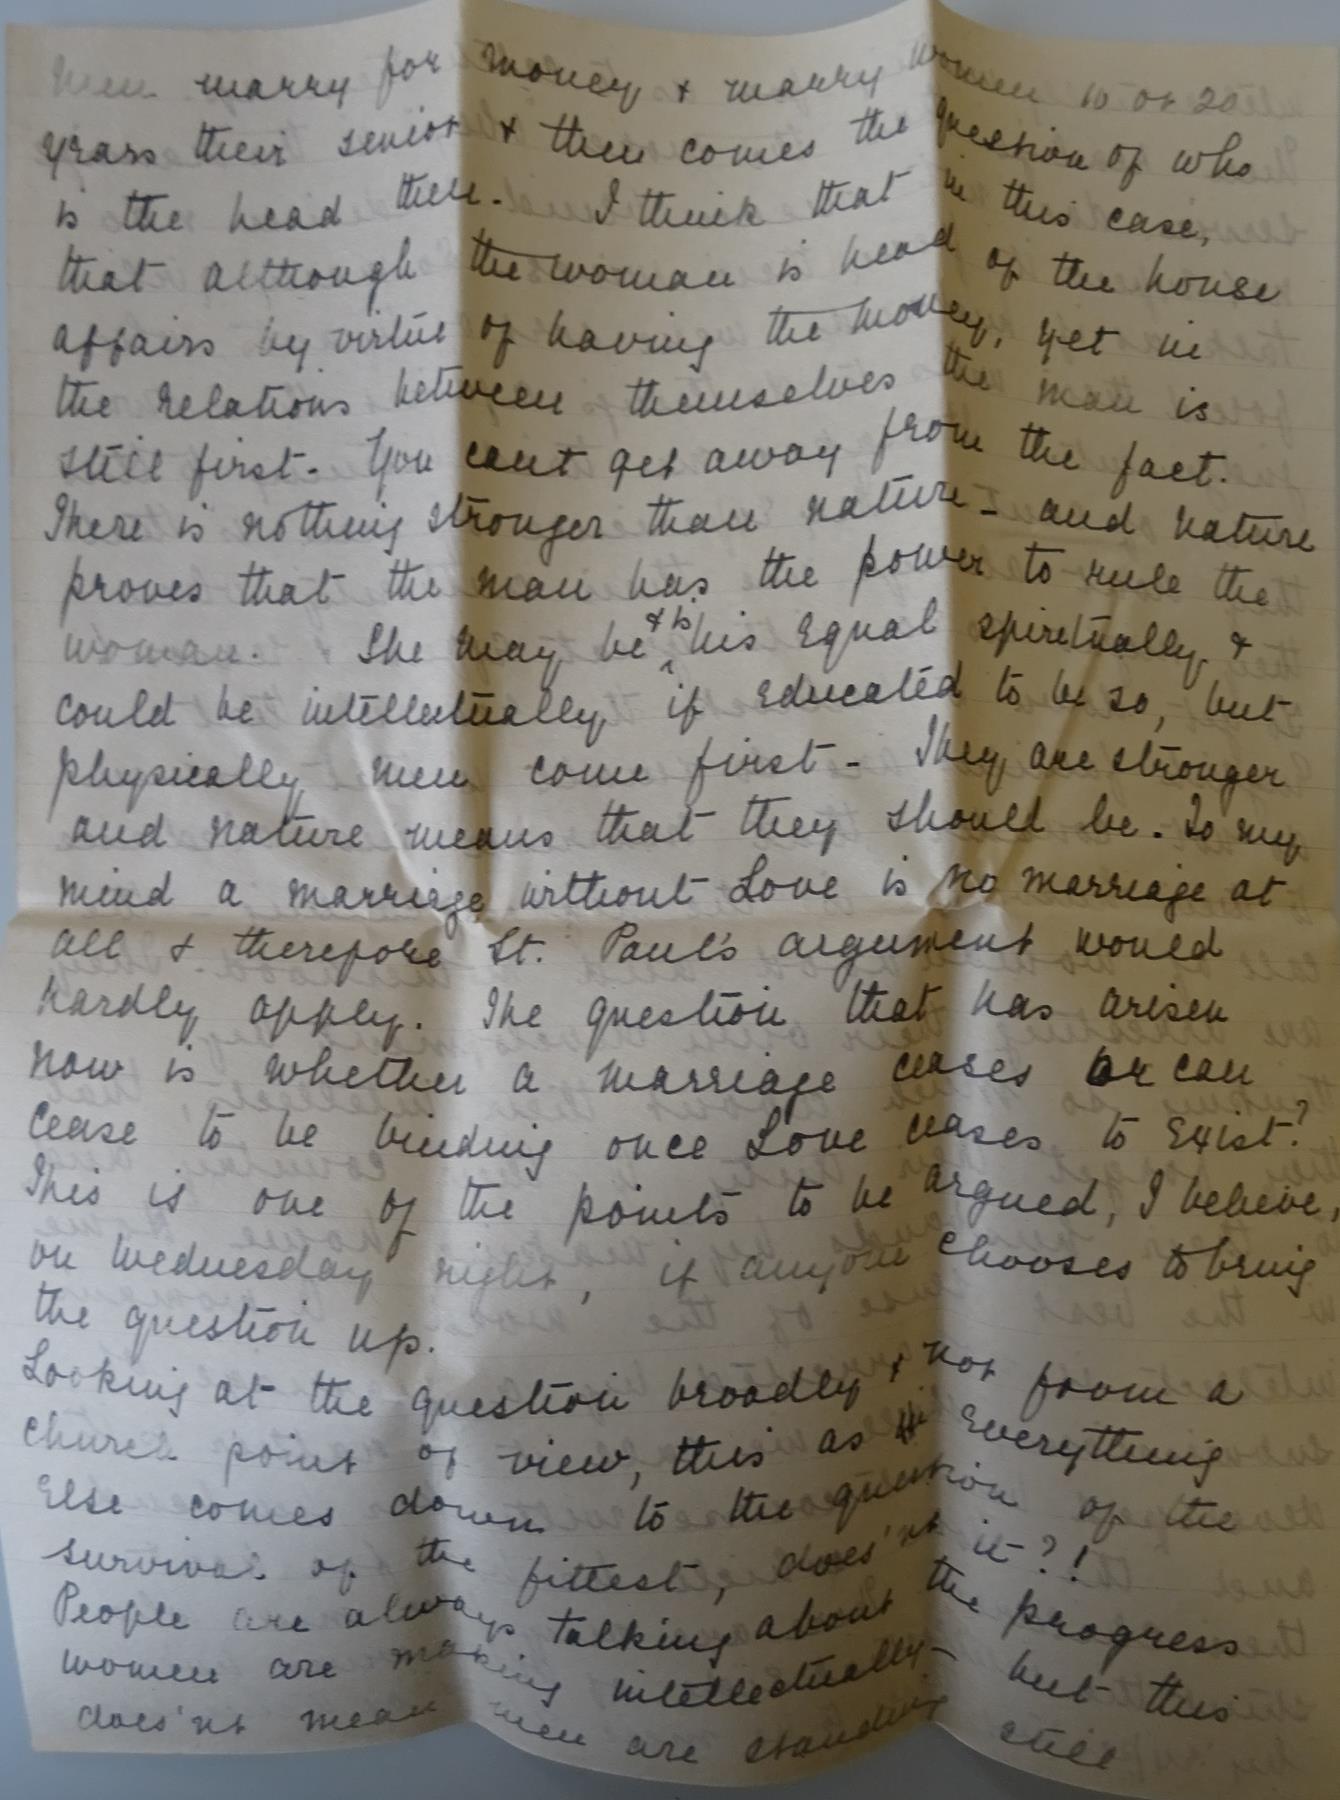 Men marry for money & marry women 10 or 20
years their senior & then comes the question of who
is the head then. I think that in this case,
that although the woman is head of the house
affairs by virtue of having the money, yet in
the relations between themselves the man is
still first. You cant get away from the fact.
There is nothing stronger than nature - and nature
proves that the man has the power to rule the
woman. She may be & is his equal spiritually &
could be intellectually if educated to be so, but
physically men come first - They are stronger
and nature means that they should be. To my
mind a marriage without Love is no marriage at
all & therefore St. Paul's argument would
hardly apply. The question that has arisen
now is whether a marriage ceases or can
cease to be binding once Love ceases to exist?
This is one of the points to be argued, I believe,
on Wednesday night, if anyone chooses to bring
the question up.
Looking at the question broadly & not from a
church point of view, this as everything
else comes down to the question of the
survival of the fittest, does'nt it?!
People are always talking about the progress
women are making intellectually - but this
does'nt mean men are standing still